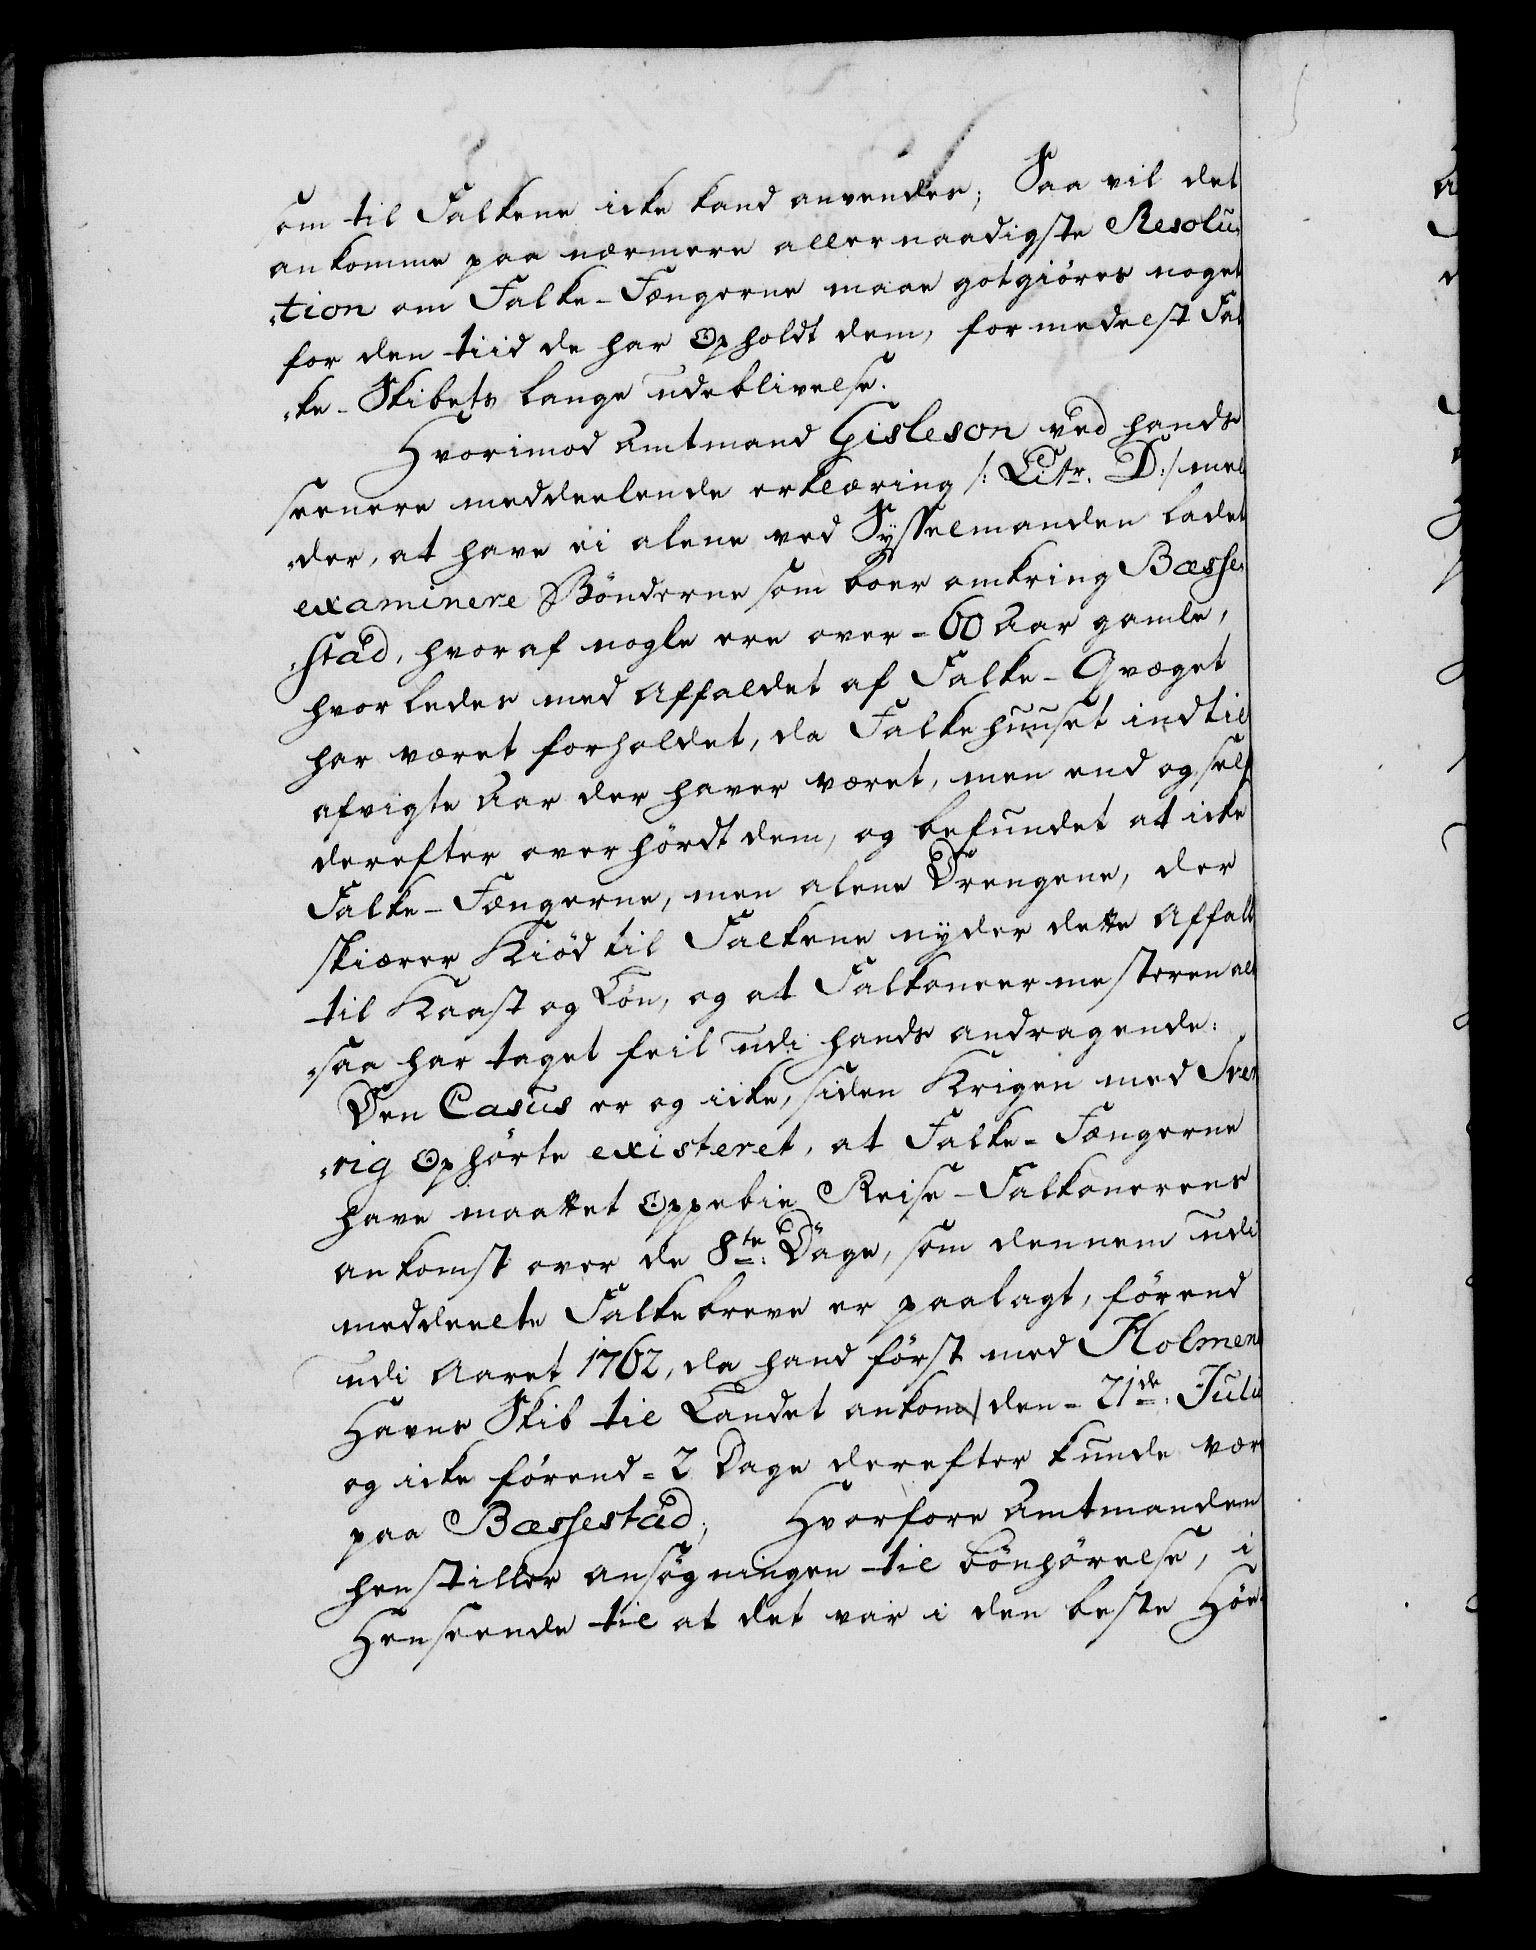 som til Falkene icke kand anvendes; Saa vil det
ankomme paa nærmere allernaadigste Resolu¬
¬tion om Falke-Fængerne maae gotgiöres noget
for den tiid de har opholdt dem, formedelst Fal
¬ke-Skibets lange udeblivelse.
Hvorimod Amtmand Gisleson ved hands
seenere meddeelende erklæring /: Litr. D:/ mel
¬der, at have ei alene ved Sysselmanden ladet
examinere Bönderne som boer omkring Bæsse¬
¬stad, hvoraf nogle ere over - 60 Aar gamle,
hvorledes med Affaldet af Falke-Qvæget
har været forholdet, da Falkehuuset indtil
afvigte Aar der haver været, men end og self
derefter overhördt dem, og befundet at icke
Falke-Fængerne, men alene Drengene, der
skiærer Kiöd til Falkene nyder dette Affald
til Kaast og Lön, og at Falkoneermesteren al
¬saa har taget feil udi hands andragende:
Den Casus er og icke, siden Krigen med Sver
¬rig ophörte existeret, at Falke-Fængerne
have maattet oppebie Reise-Falkonerens
ankomst over de 8te: Dage, som dennem udi
meddeelte Falkebreve er paalagt, förend
udi Aaret 1762, da hand först med Holmens
Havns Skib til Landet ankom den - 21de: Julii
og icke förend - 2 Dage derefter kunde være
paa Bæssestad; Hvorfore Amtmanden
henstiller ansögningen til bönhörelse, i
Henseende til at det var i den beste Höe¬